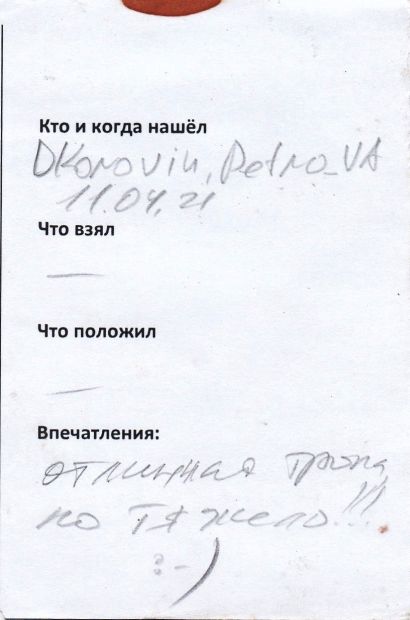 Кто и когда нашёл
DKorovin, Petro_VA
11.04.21
Что взял
—
Что положил
—
Впечатления:
отличная тропа,
но тяжело!!!
:-)